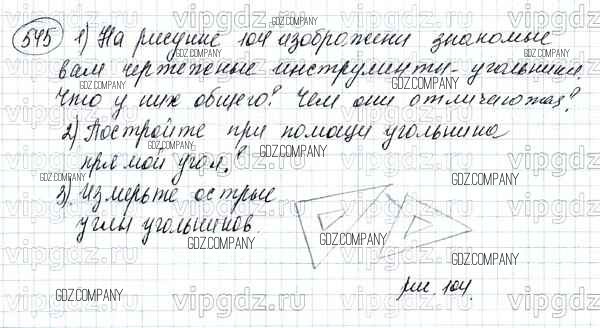 545 1) На рисунке 104 изображены знакомые
вам чертежные инструменты - угольники.
Что у них общего? Чем они отличаются?
2) Постройте при помощи угольника
прямой угол.
3) Измерьте острые
углы угольников.
рис. 104.
GDZ.COMPANY
vipgdz.ru